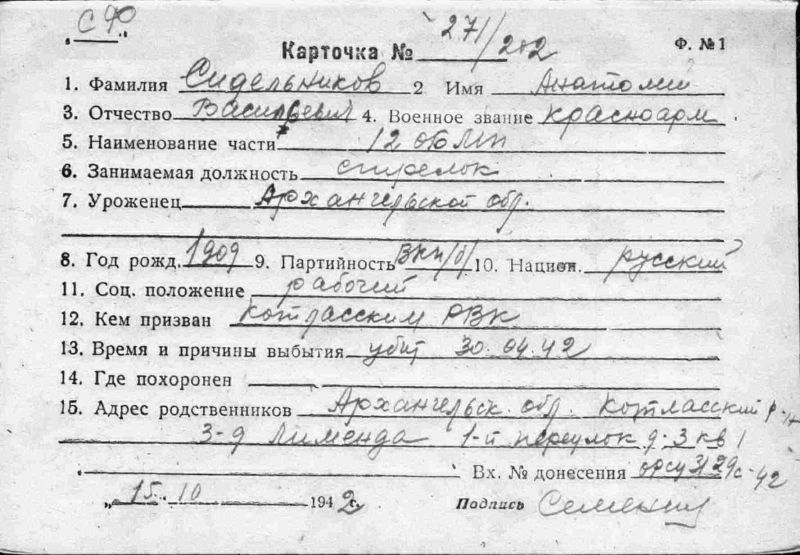 „СФ"
Карточка № 271/202 Ф. №1
1. Фамилия Сидельников 2 Имя Анатолий
3. Отчество Васильевич 4. Военное звание красноарм
5. Наименование части 12 обмп
6. Занимаемая должность стрелок
7. Уроженец Архангельской обл.
8. Год рожд. 1909 9. Партийность ВКП/б/ 10. Национ. русский
11. Соц. положение рабочий
12. Кем призван Котласским РВК
13. Время и причины выбытия убит 30.04.42
14. Где похоронен
15. Адрес родственников Архангельск. обл. Котласский р-н
3-д Лименда 1-й переулок д. 3 кв 1
Вх. № донесения
„15. 10 1942г. Подпись